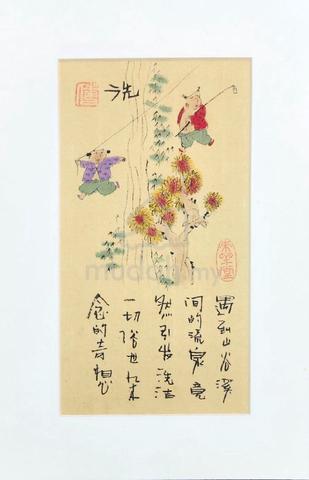 洗
遇到山谷溪
间的流泉竟
然引发洗洁
一切俗世杂
念的奇想
mudah.my